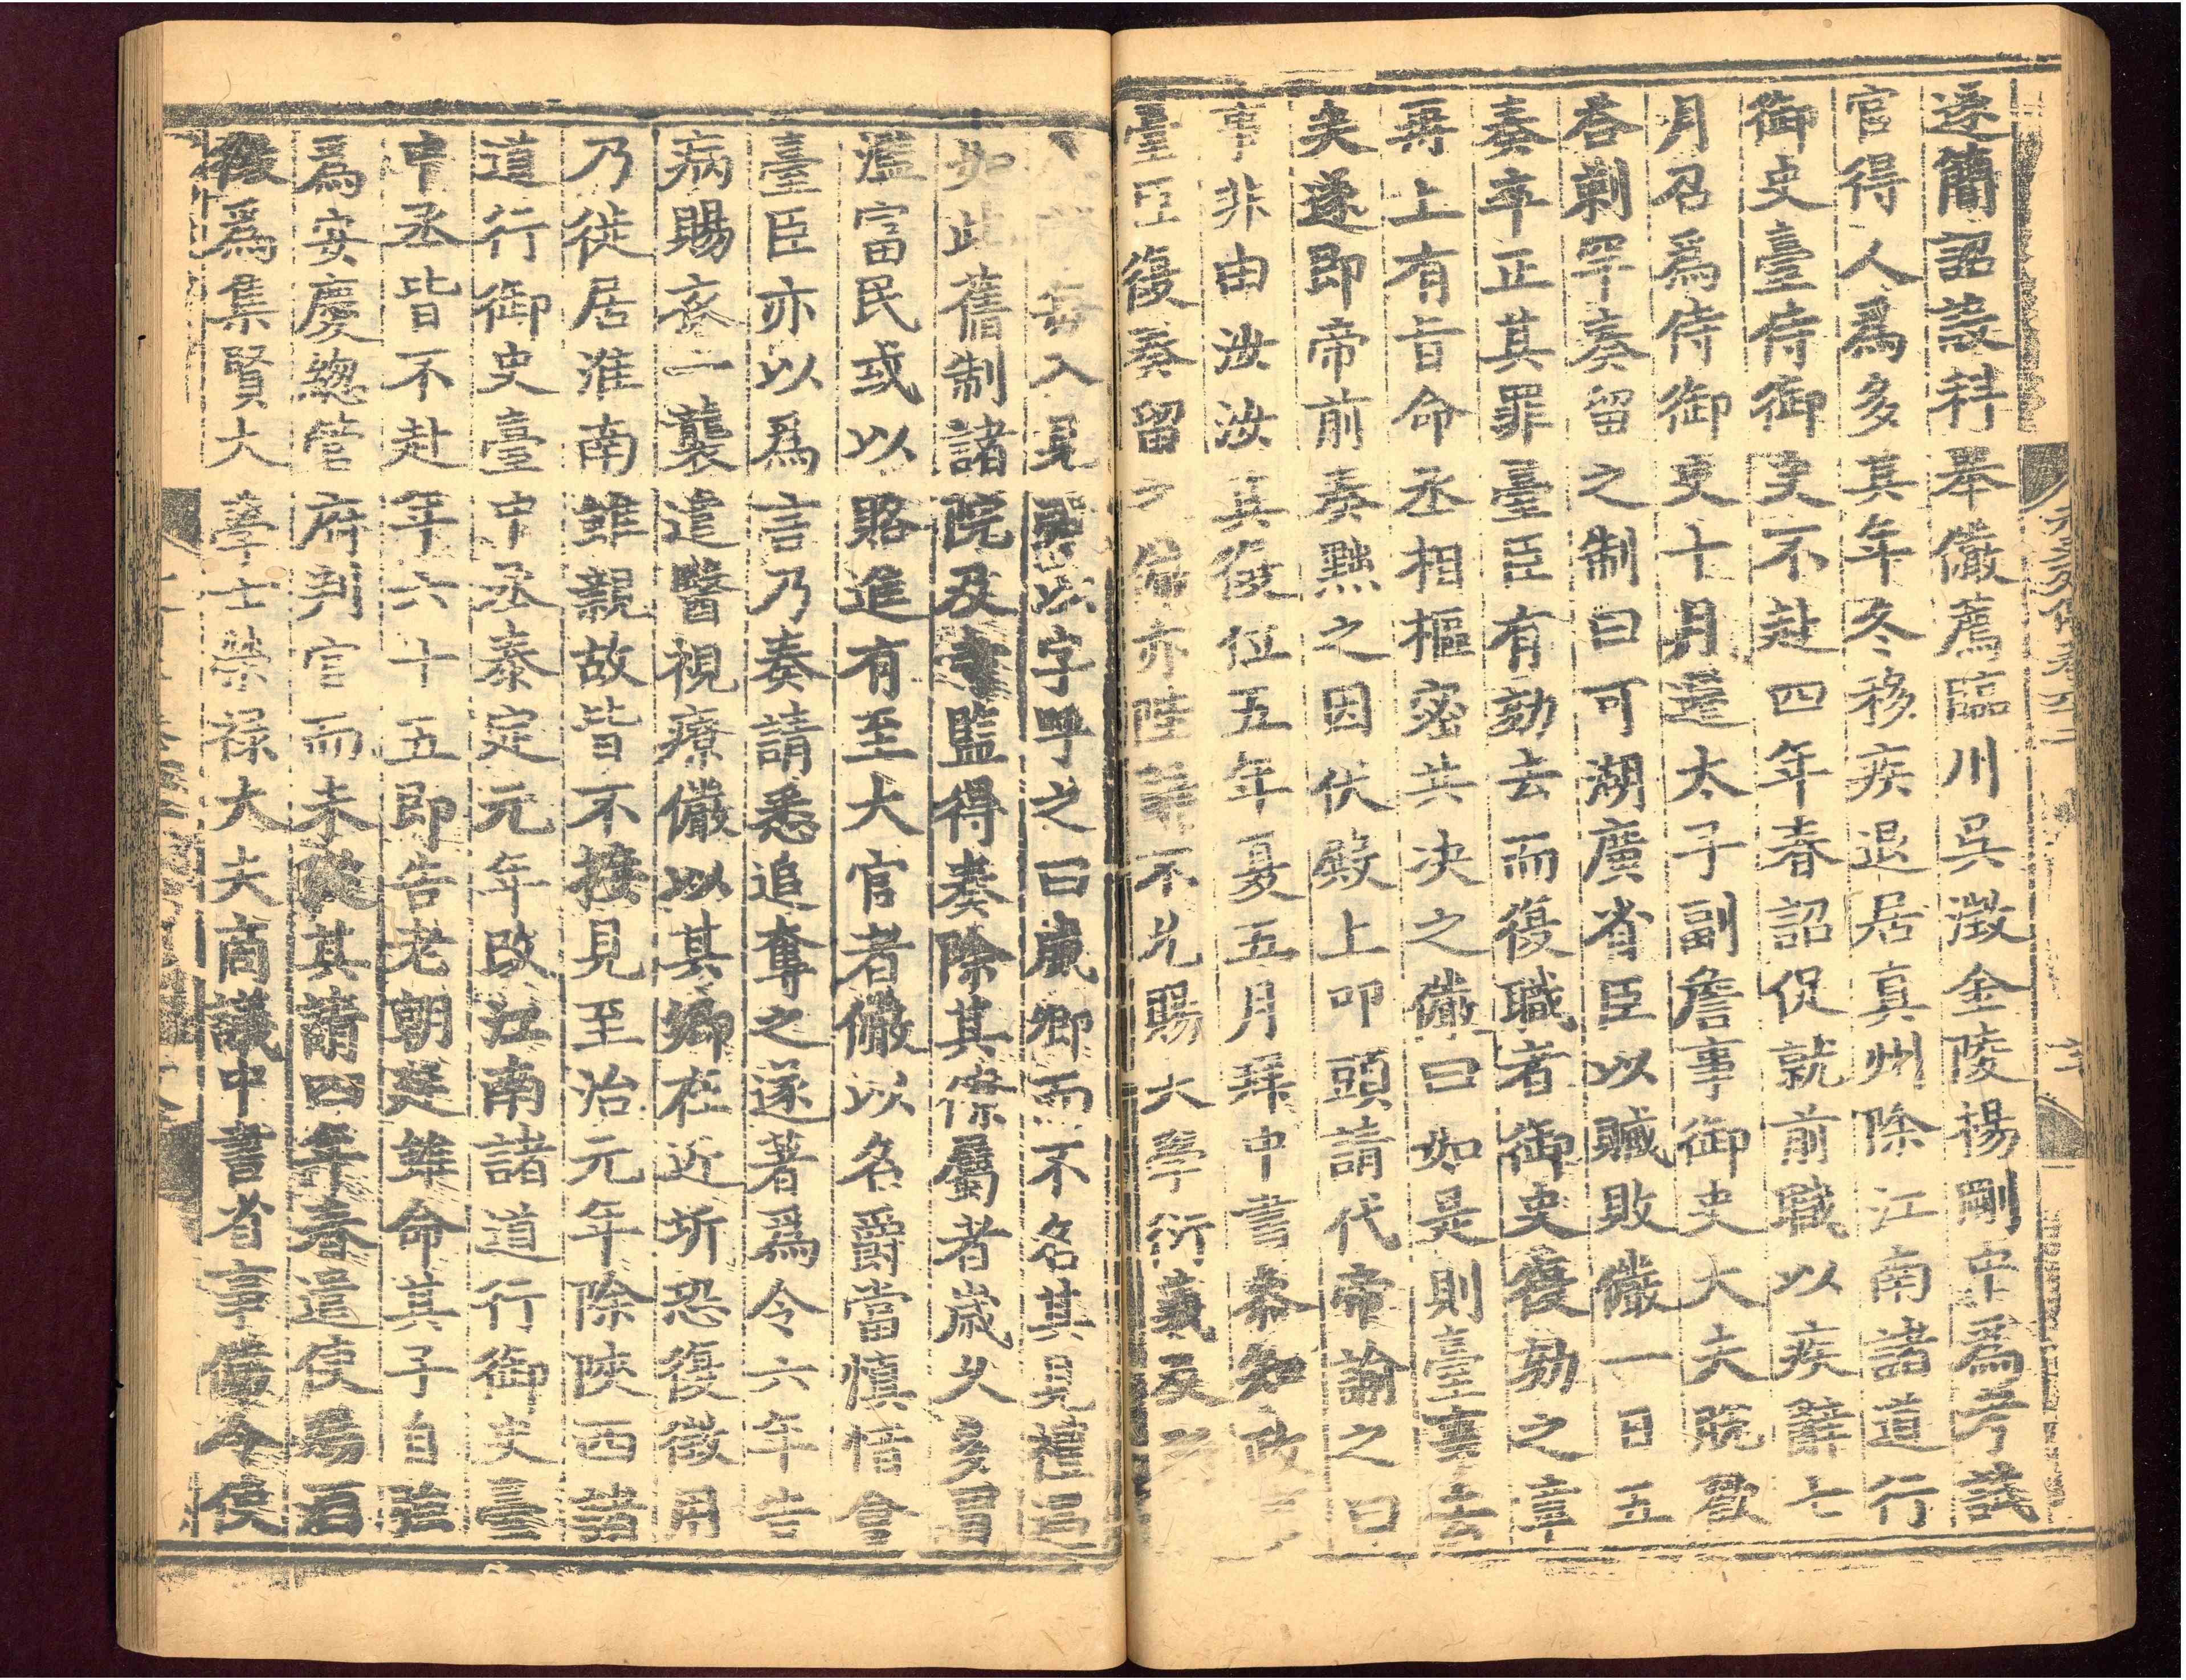 遂簡詔設科舉儼薦臨川吳澂金陵楊剛中爲考試
官得人爲多其年冬移疾退居真州除江南諸道行
御史臺侍御史不赴四年春詔促就前職以疾辭七
月召爲侍御史十月遷太子副詹事御史大夫脫歡
荅剌罕奏留之制曰可湖廣省臣以贓敗儼一日五
奏卒正其罪臺臣有劾去而復職者御史復劾之章
再上有旨命丞相樞密共決之儼曰如是則臺事去
矣遂即帝前奏黜之因伏殿上叩頭請代帝諭之曰
事非由汝汝其復位五年夏五月拜中書叅知政
臺臣復奏留儼亦陛辭不允賜大學衍義及
每入見以字呼之曰威卿而不名其見禮遇
如此舊制諸院及寺監得奏除其僚屬者歲久多冒
濫富民或以賂進有至大官者儼以名爵當慎惜會
臺臣亦以爲言乃奏請悉追奪之遂著爲令六年告
病賜衣一襲遣醫視療儼以其鄉在近圻恐復徵用
乃徙居淮南雖親故皆不接見至治元年除陝西諸
道行御史臺中丞泰定元年改江南諸道行御史臺
中丞皆不赴年六十五即告老朝廷雖命其子自強
爲安慶總管府判官而未從其請四年春遣使賜酒
徵爲集賢大學士榮祿大夫商議中書省事儼令使